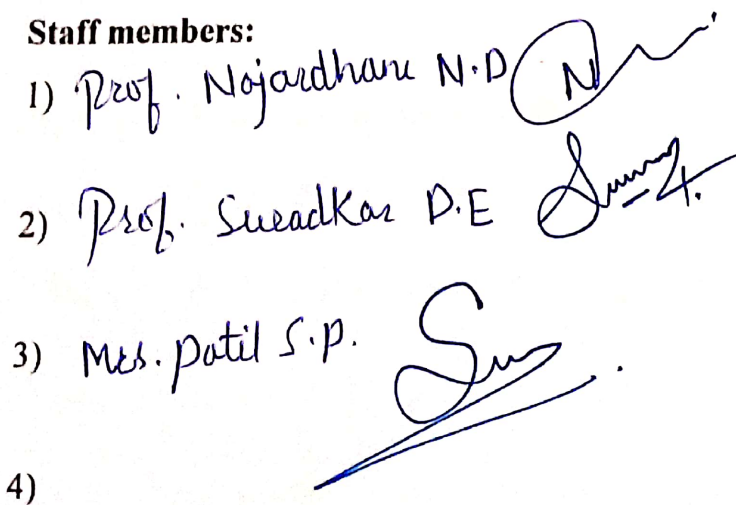 Staff members:
1) Prof. Nojardhane N.D
2) Prof. Suradkar D.E
3) Mrs. Patil S.P.
4)